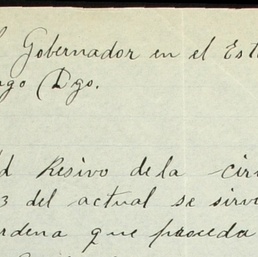 l Gobernador en el Est
ngo Dgo.
d Resivo de la cir
3 del actual se sirv
rdena que proceda